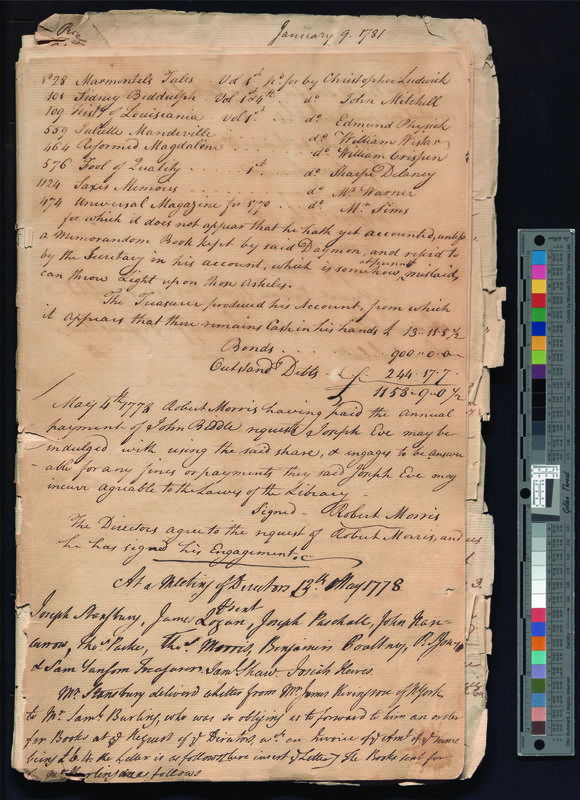 January 9. 1781
828 Marmontels Tales Vol 1st pd for by Christopher Ludwick
101 Sidney Biddulph Vol 1st & 4th do John Mitchell
109 Histy of Louisiania Vol 1st do Edmund Physick
559 Juliette Mandeville do William Wistar
464 Reformed Magdalene do William Crispin
576 Fool of Quality 1st do Sharpe Delaney
1124 Saxes Memoirs do Mr Warner
474 Universal Magazine for 1770 do Mr Sims
for which it does not appear that he hath yet accounted, unless
a Memorandum Book kept by said Daymon, and refer'd to
by the Secretary in his account, which is somehow mislaid,
can throw Light upon those Articles.
The Treasurer produced his Account, from which
it appears that there remains Cash in his hands £ 13"11"5½
Bonds 900"0"0
Outstand Debts 244"17"7
£ 1158"9"0½
May 4th 1778 Robert Morris having paid the annual
payment of John Biddle requests Joseph Eve may be
indulged with using the said share, & ingages to be answer
able for any fines or payments they said Joseph Eve may
incur agreable to the Lawes of the Library
Signed Robert Morris
The Directors agree to the request of Robert Morris, and
he has signed his Engagement
At a Meeting of Directors 13th May 1778
Present
Joseph Stansbury, James Logan, Joseph Paschall, John Nan-
carrow, Thos Parke, Thos Morris, Benjamin Poultney,
& Sam Sansom Treasurer, Saml Shaw, Josiah Hewes.
Mr Stansbury deliverd a letter from Mr James Rivington of N York
to Mr Saml Burling, who was so obliging as to forward to him an order
for Books at ye Request of ye Directors, wth an Invoice of ye Amt of ye same
being £ 6.4. the Letter is as follows (here insert ye Letter) The Books sent for
follows